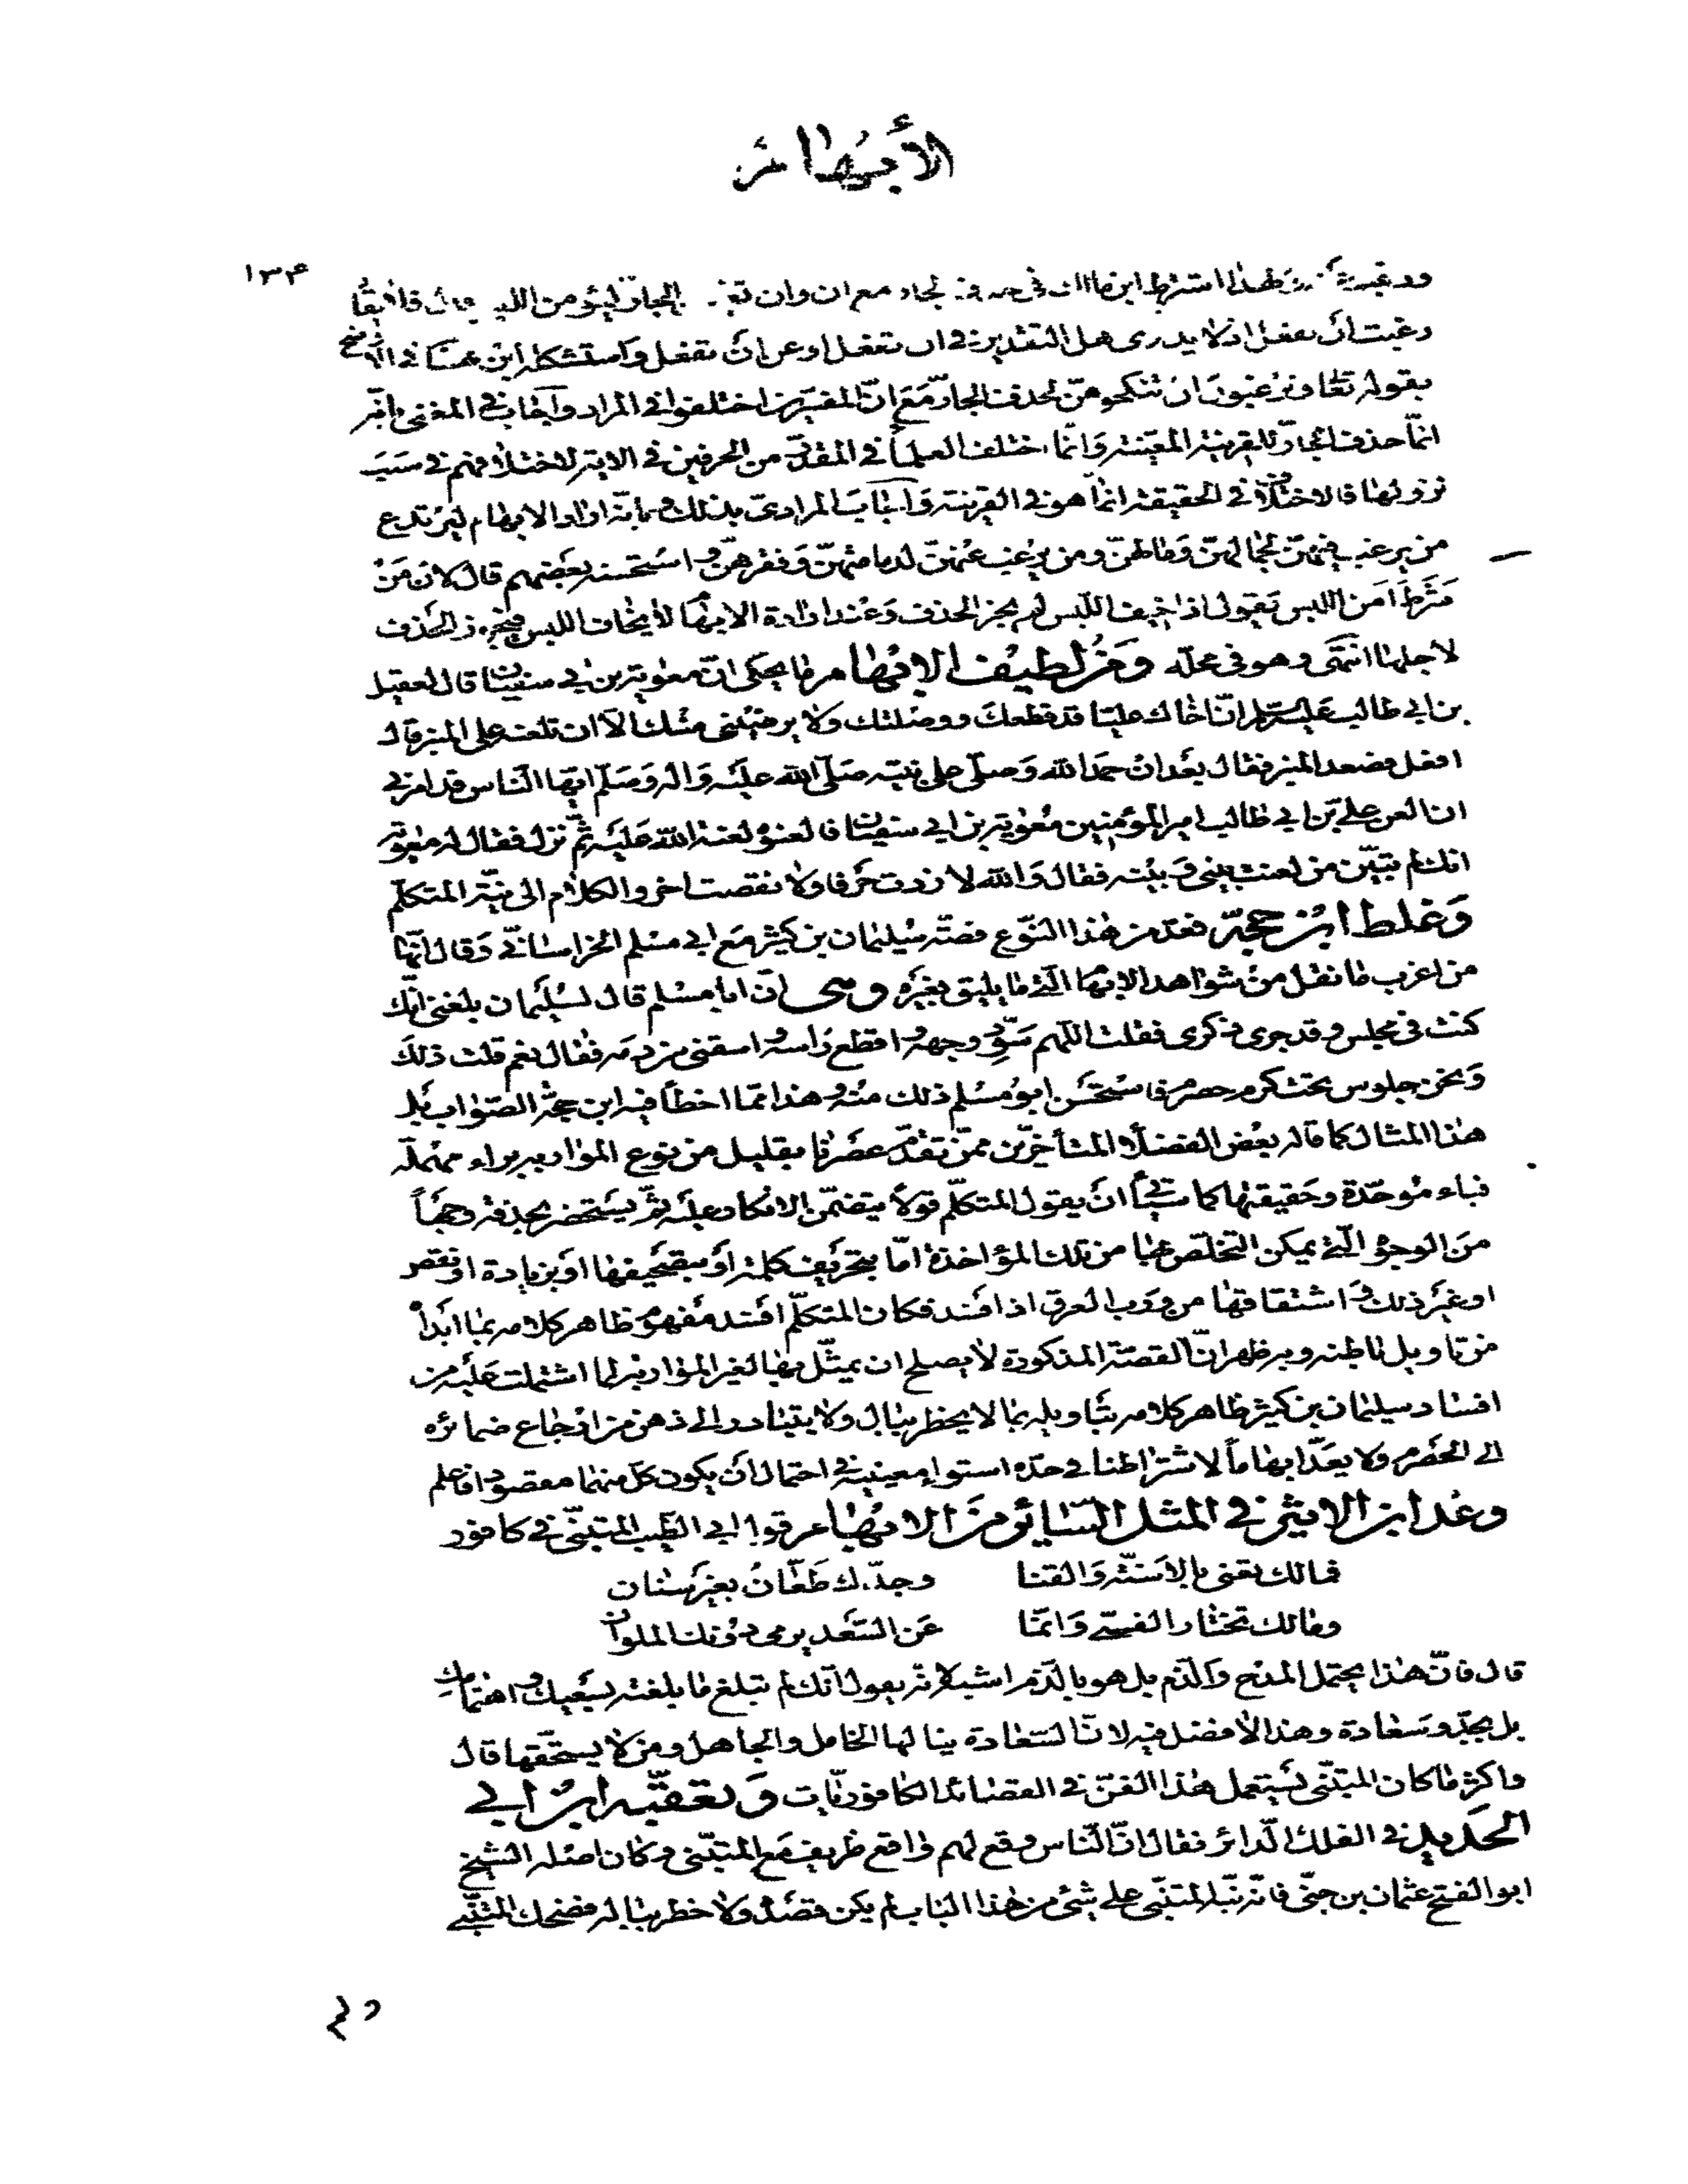 الأبهام
١٣٤
ولهذا اشترط ابن مالك في حذف الجار مع ان وان من اللبس
رغبت ان تفعل اذ لا يدرى هل التقدير في ان تفعل او عن ان تفعل واستشكله ابن هشام في الاوضح
بقوله تعالى وترغبون ان تنكحوهن لحذف الجار مع ان المفسرين اختلفوا في المراد واجاب في المغني بانه
انما حذف الجار للقرينة المعينة وانما اختلف العلماء في المقدر من الحرفين في الاية لاختلافهم في سبب
نزولها فالاختلاف في الحقيقة انما هو في القرينة واجاب المرادي بذلك وبانه اراد الابهام ليرتدع
من يرغب فيهن لجمالهن ومالهن ومن يرغب عنهن لدمامتهن وفقرهن واستحسنه بعضهم قال لان من
شرط امن اللبس يقول اذا خيف اللبس لم يجز الحذف وعند ارادة الابهام لا يخاف اللبس فيجوز الحذف
لاجلها انتهى وهو في محله ومن لطيف الابهام ما يحكى ان معوية بن ابي سفيان قال لعقيل
بن ابي طالب عليه السلام ان اخاك عليا قد قطعك ووصلتك ولا يرضيني منك الا ان تلعنه على المنبر قال
افعل فصعد المنبر فقال بعد ان حمد الله وصلى على نبيه صلى الله عليه واله وسلم ايها الناس قد امرني
ان العن علي بن ابي طالب امير المؤمنين معوية بن ابي سفيان فالعنوه لعنة الله عليه ثم نزل فقال له معوية
انك لم تبين من لعنت بيني وبينه فقال والله لا زدت حرفا ولا نقصت اخر والكلام الى نية المتكلم
وغلط ابن حجة فعد من هذا النوع قصة سليمان بن كثير مع ابي مسلم الخراساني وقال انها
من اغرب ما نقل من شواهد الابهام التي ما يليق بغيره وهي ان ابا مسلم قال لسليمان بلغني انك
كنت في مجلس وقد جرى ذكري فقلت اللهم سود وجهه واقطع راسه واسقني من دمه فقال نعم قلت ذلك
ونحن جلوس تحت كرم حصرم فاستحسن ابو مسلم ذلك منه وهذا مما اخطأ فيه ابن حجة الصواب بل
هذا المثال كما قاله بعض الفضلاء المتأخرين ممن تقدم عصرنا بقليل من نوع المواربة براء مهملة
فباء موحدة وحقيقتها كما سيأتي ان يقول المتكلم قولا يتضمن الانكار عليه ثم يستحضر بحذقه وجها
من الوجوه التي يمكن التخلص بها من تلك المؤاخذة اما بتحريف كلمة او بتصحيفها او بزيادة او نقص
او غير ذلك واشتقاقها من ورب العرق اذا افسد فكان المتكلم افسد مفهوم ظاهر كلامه بما ابداه
من تاويل باطنه وبه ظهر ان القصة المذكورة لا يصلح ان يمثل بها لغير المواربة لما اشتملت عليه من
افساد سليمان بن كثير ظاهر كلامه بتاويله بما لا يخطر ببال ولا يتبادر الى ذهن من ارجاع ضمائره
الى الحصرم ولا يعد ابهاما لاشتراطنا في حده استواء معنييه في احتمال ان يكون كل منهما مقصودا فاعلم
وعد ابن الاثير في المثل السائر من الابهام قول ابي الطيب المتنبي في كافور
فمالك تعنى بالاسنة والقنا وجدك طعان بغير سنان
ومالك تختار القسي وانما عن السعد يرمي دونك الملوان
قال فان هذا يحتمل المدح والذم بل هو بالذم اشبه لانه يقول انك لم تبلغ ما بلغته بسعيك واهتمامك
بل بجد وسعادة وهذا لا فضل فيه لان السعادة ينالها الخامل والجاهل ومن لا يستحقها قال
واكثر ما كان المتنبي يستعمل هذا الفن في القصائد الكافوريات وتعقبه ابن ابي
الحديد في الفلك الدائر فقال ان الناس وقع لهم واقع ظريف مع المتنبي وكان اصله الشيخ
ابو الفتح عثمان بن جني فانه نبه المتنبي على شئ من هذا الباب لم يكن قصده ولا خطر بباله فضحك المتنبي